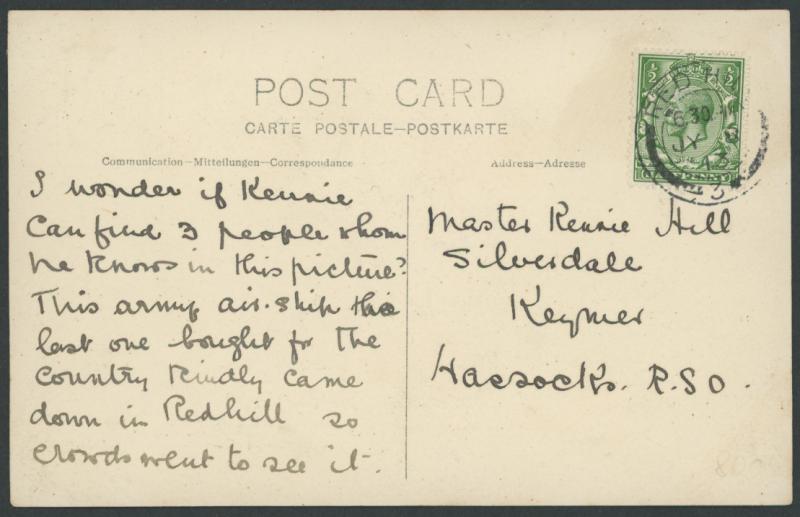 POST CARD
CARTE POSTALE—POSTKARTE
Communication—Mitteilungen—Correspondance
Address—Adresse
I wonder if Kennie
can find 3 people whom
he knows in this picture?
This army air-ship the
last one bought for the
country kindly came
down in Redhill so
crowds went to see it.
Master Kennie Hill
Silverdale
Keymer
Hassocks. R.S.O.
½ ½
PENNY
RED HILL
6.30
JY 8
13